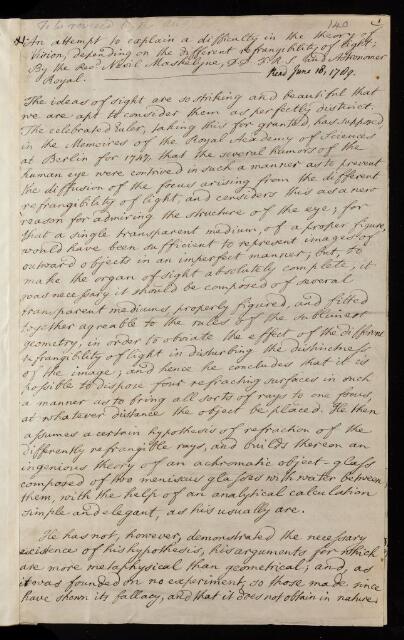 140
An attempt to explain a difficulty in the theory of
vision, depending on the different refrangibility of light;
By the Rev.d Nevil Maskelyne, D.D. F.R.S. and Astronomer
Royal. Read June 18, 1789.
The ideas of sight are so striking and beautiful that
we are apt to consider them as perfectly distinct.
The celebrated Euler, taking this for granted, has supposed
in the Memoires of the Royal Academy of Sciences
at Berlin for 1747, that the several humors of the
human eye were contrived in such a manner as to prevent
the diffusion of the focus arising from the different
refrangibility of light, and considers this as a new
reason for admiring the structure of the eye; for
that a single transparent medium, of a proper figure,
would have been sufficient to represent images of
outward objects in an imperfect manner; but, to
make the organ of sight absolutely complete, it
was necessary it should be composed of several
transparent mediums, properly figured, and fitted
together agreable to the rules of the sublimest
geometry, in order to obviate the effect of the different
refrangibility of light in disturbing the distinctness
of the image; and hence he concludes that it is
possible to dispose four refracting surfaces in such
a manner as to bring all sorts of rays to one focus,
at whatever distance the object be placed. He then
assumes a certain hypothesis of refraction of the
differently refrangible rays, and builds thereon an
ingenious theory of an achromatic object-glass
composed of two meniscus glasses with water between
them, with the help of an analytical calculation
simple and elegant, as his usually are.
He has not, however, demonstrated the necessary
existence of his hypothesis, his arguments for which
are more metaphysical than geometrical; and, as
it was founded on no experiment, so those made since
have shown its fallacy, and that it does not obtain in nature.